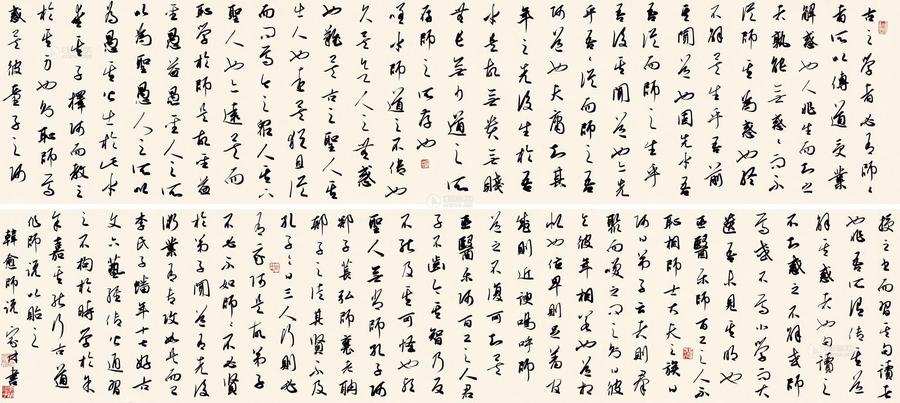 古之學者必有師〻
者所以傳道受業
解惑也人非生而知之
者孰能無惑〻而不
從師其為惑也終
不解矣生乎吾前
其聞道也固先乎吾
吾從而師之生乎
吾後其聞道也亦先
乎吾吾從而師之吾
師道也夫庸知其
年之先後生於吾
乎是故無貴無賤
無長無少道之所
存師之所存也
嗟乎師道之不傳也
久矣欲人之無惑
也難矣古之聖人其
出人也遠矣猶且從
而問焉今之眾人其下
聖人也亦遠矣而
恥學於師是故聖益
聖愚益愚聖人之所
以為聖愚人之所以
為愚其皆出於此乎
愛其子擇師而教之
於其身也則恥師焉
惑矣彼童子之師
授之書而習其句讀者
也非吾所謂傳其道
解其惑者也句讀之
不知惑之不解或師
焉或不焉小學而大
遺吾未見其明也
巫醫樂師百工之人不
恥相師士大夫之族曰
師曰弟子云者則群
聚而笑之問之則曰彼
與彼年相若也道相
似也位卑則足羞官
盛則近諛嗚呼師
道之不復可知矣
巫醫樂師百工之人君
子不齒今其智乃反
不能及其可怪也歟
聖人無常師孔子師
郯子萇弘師襄老聃
郯子之徒其賢不及
孔子〻曰三人行則必
有我師是故弟子
不必不如師〻不必賢
於弟子聞道有先後
術業有專攻如是而已
李氏子蟠年十七好古
文六藝經傳皆通習
之不拘於時學於余
余嘉其能行古道
作師說以貽之
韓愈師說 書